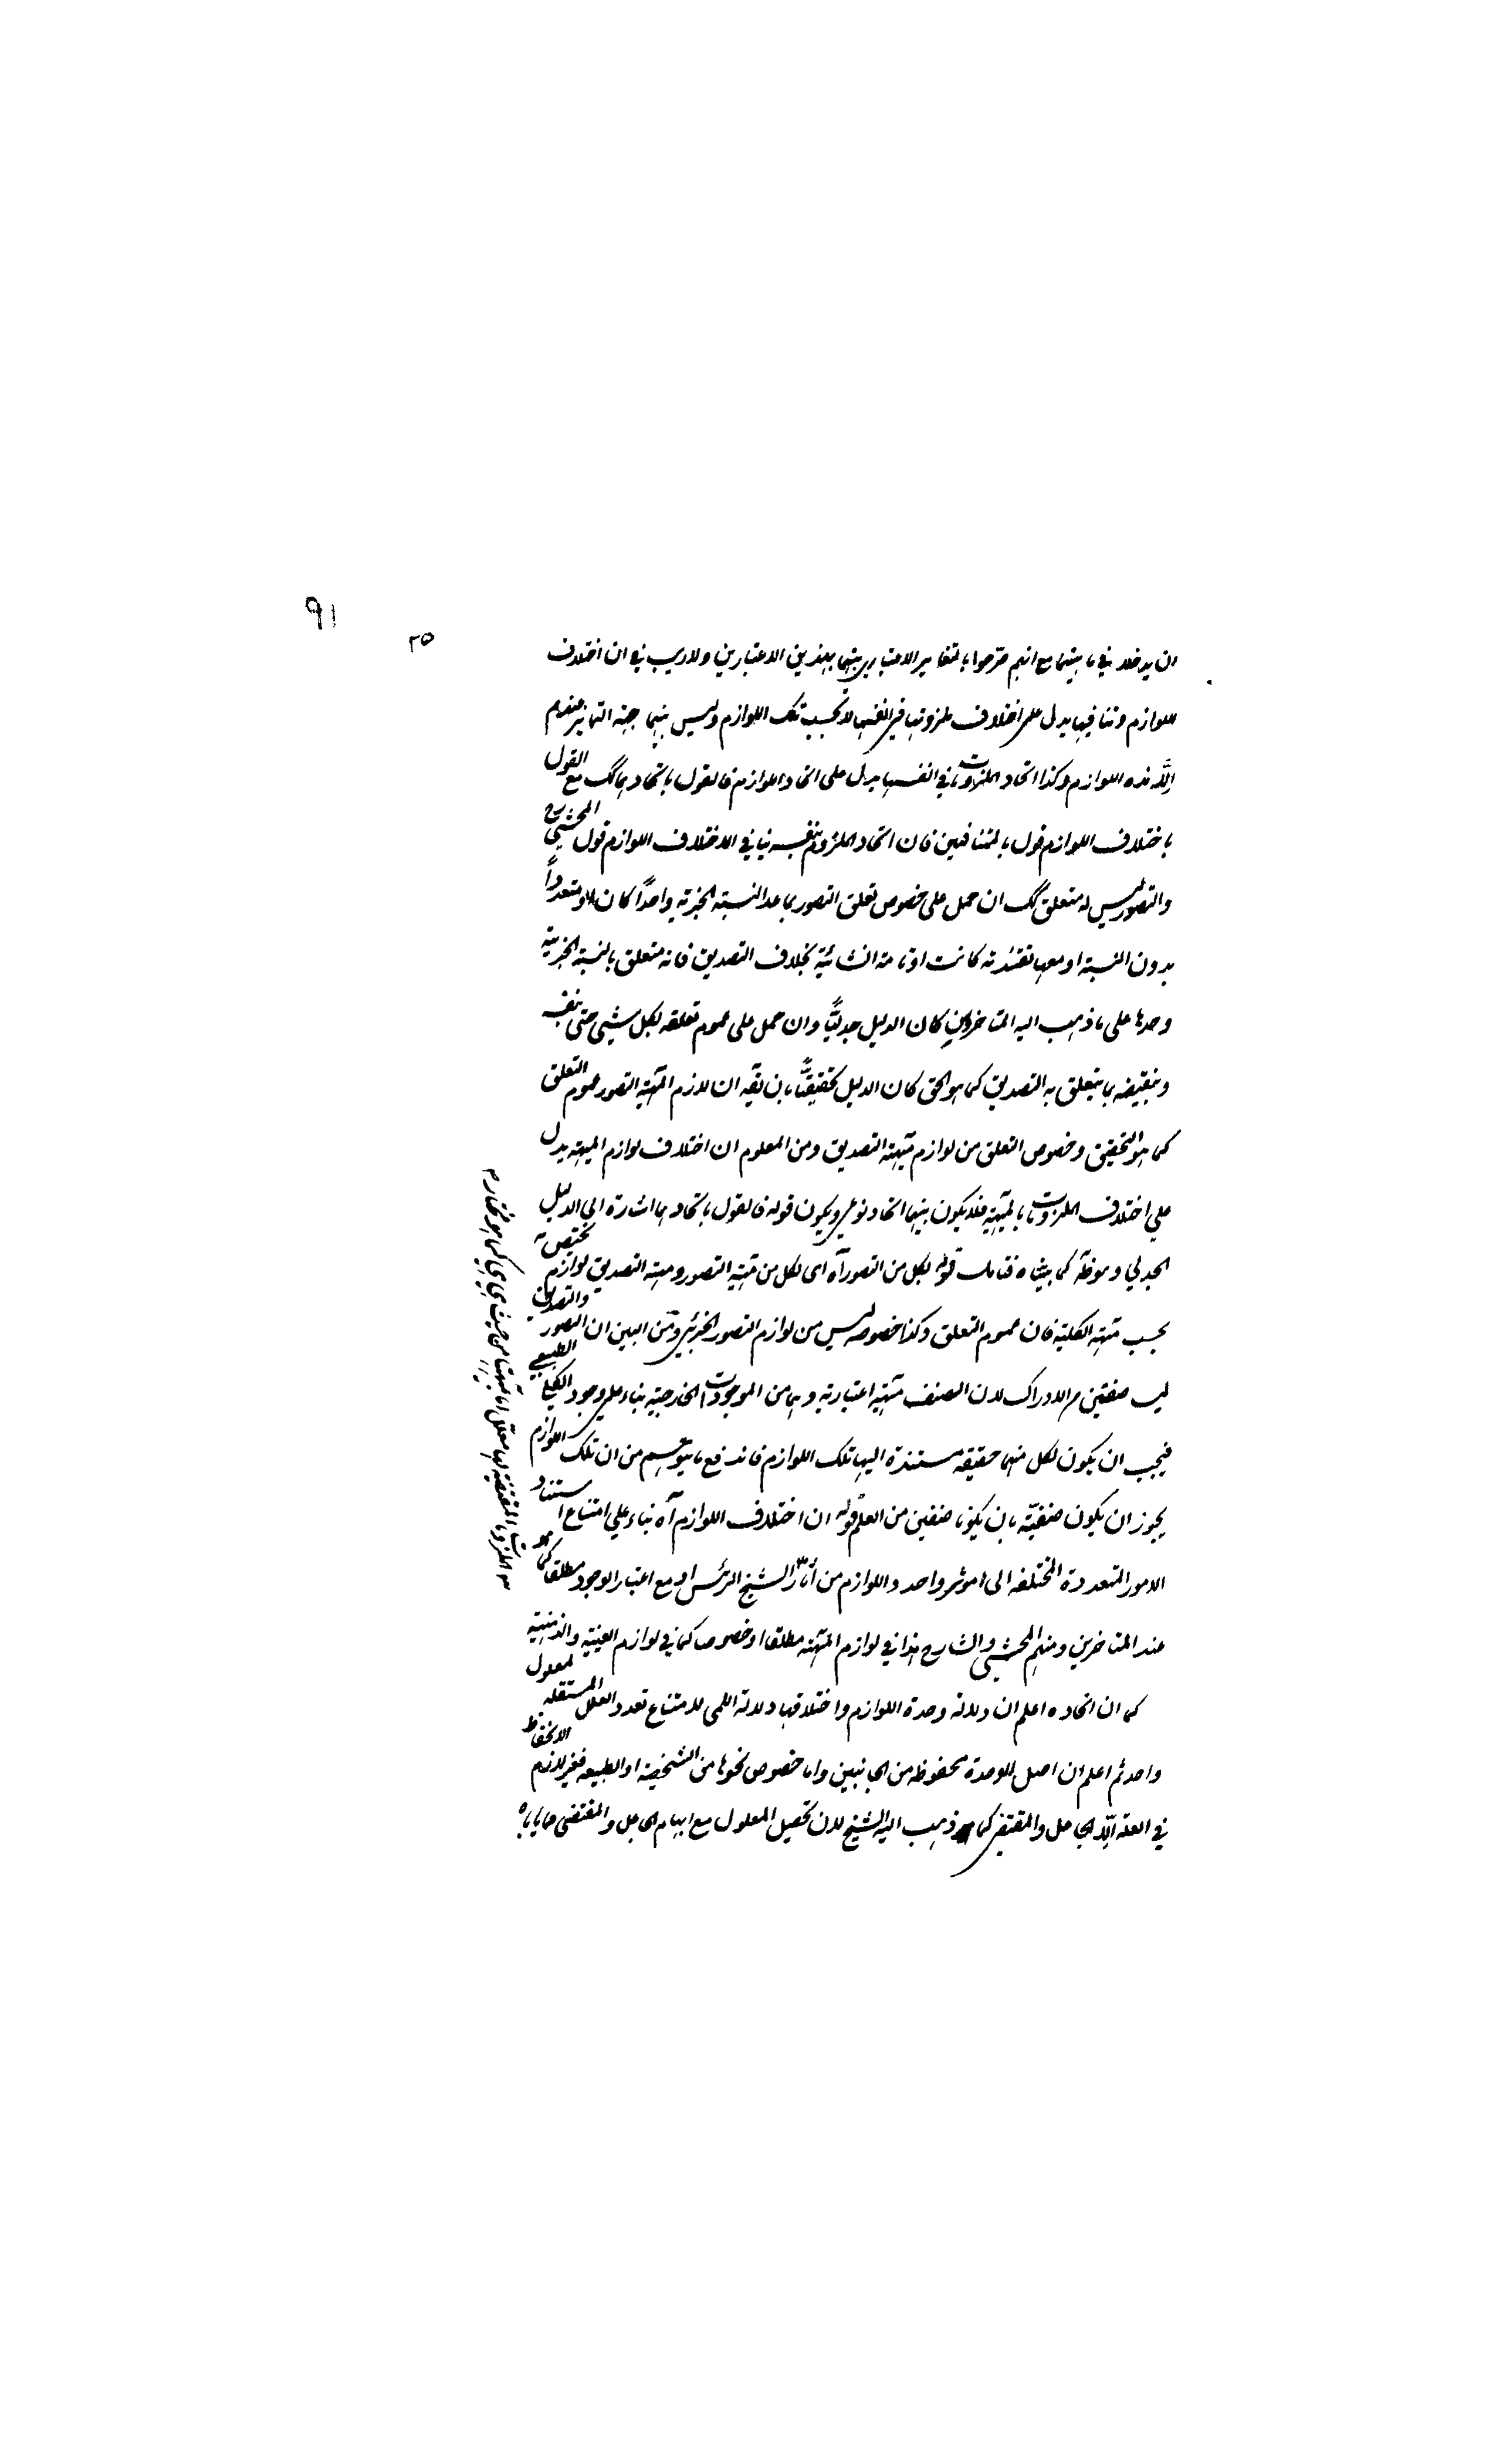 ٩١
٢٥
ان يدخلا في ماهيتهما مع انهم صرحوا بالتغاير الاعتباري بينهما بهذين الاعتبارين ولا ريب في ان اختلاف
اللوازم وتنافيها يدل على اختلاف ملزوماتها في انفسها لا بحسب تلك اللوازم وليس بينهما جهة التمايز عندهم
الا هذه اللوازم وكذا اتحاد الملزومات في انفسها يدل على اتحاد اللوازم فالقول باتحادهما مع القول
باختلاف اللوازم قول بالمتنافيين فان اتحاد الملزوم بنفسه ينافي الاختلاف اللوازم قول المحشي رح
والتصور ليس له متعلق ان حمل على خصوص تعلق التصور بما عدا النسبة الخبرية واحدًا كان او متعددًا
بدون النسبة او معها تقييدية كانت او تامة انشائية بخلاف التصديق فانه متعلق بالنسبة الخبرية
وحدها على ما ذهب اليه المتاخرون كان الدليل جدليًّا وان حمل على عموم تعلقه لكل شيئ حتى بنفسه
وبنقيضه بما يتعلق به التصديق كما هو الحق كان الدليل تحقيقيًّا بان يقه ان لازم المهية التصور عموم التعلق
كما هو التحقيق وخصوص التعلق من لوازم مهية التصديق ومن المعلوم ان اختلاف لوازم المهية يدل
على اختلاف الملزومات بالمهية فلا يكون بينهما اتحاد نوعي ويكون قوله فالقول باتحادهما اشارة الى الدليل
الجدلي كما بيناه فتامل قوله لكل من التصور آه اى لكل من مهية التصور ومهية التصديق لوازم تختص به
بحسب مهية الكلية فان عموم التعلق وكذا خصوصه ليس من لوازم التصور الجزئي ومن البين ان التصور والتصديق
ليسا صنفين من الادراك لان الصنف مهية اعتبارية وهما من الموجودات الخارجية بناء على وجود الكلي الطبيعي
فيجب ان يكون لكل منهما حقيقة مستندة اليها تلك اللوازم فاندفع ما يتوهم من ان تلك اللوازم
يجوز ان يكون صنفية بان يكونا صنفين من العلم قوله ان اختلاف اللوازم آه بناء على امتناع استناد
الامور المتعددة المختلفة الى موثر واحد واللوازم من آثار الشيخ الرئيس او مع اعتبار الوجود مطلقا كما هو
عند المتاخرين ومنهم المحشي والشارح هذا في لوازم المهية مطلقا او خصوصا كما في لوازم العينية والذهنية
كما ان اتحاده اعلم ان دلالة وحدة اللوازم واختلافها دلالة اللمى لامتناع تعدد العلل المستقلة لمعلول
واحد ثم اعلم ان اصل الوحدة محفوظة من الجانبين واما خصوص نحوها من الشخصية او الطبيعية فغير لازم الانحفاظ
في العلة الجاعل والمقتضي كما ذهب اليه الشيخ لان تحصيل المعلول مع ابهام الجاعل والمقتضى مما ياباه
الملزومات المقتضية لها من حيث هي هي كما هو مختار